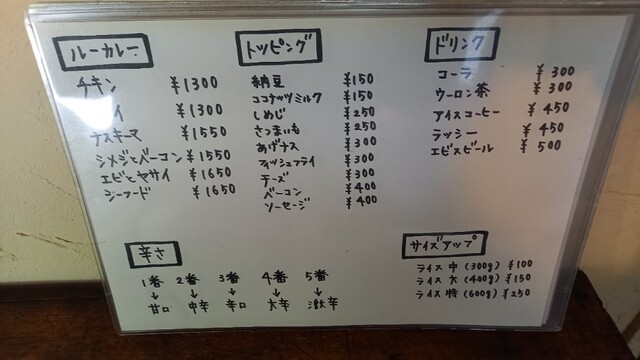 ルーカレー
チキン ¥1300
イ ¥1300
ナスキーマ ¥1550
シメジとベーコン ¥1550
エビとヤサイ ¥1650
シーフード ¥1650
トッピング
納豆 ¥150
ココナッツミルク ¥150
しめじ ¥250
さつまいも ¥250
あげナス ¥300
フィッシュフライ ¥300
チーズ ¥300
ベーコン ¥400
ソーセージ ¥400
ドリンク
コーラ ¥300
ウーロン茶 ¥300
アイスコーヒー ¥450
ラッシー ¥450
エビスビール ¥500
辛さ
1番 2番 3番 4番 5番
↓ ↓ ↓ ↓ ↓
甘口 中辛 辛口 大辛 激辛
サイズアップ
ライス 中 (300g) ¥100
ライス 大 (400g) ¥150
ライス 特 (600g) ¥250